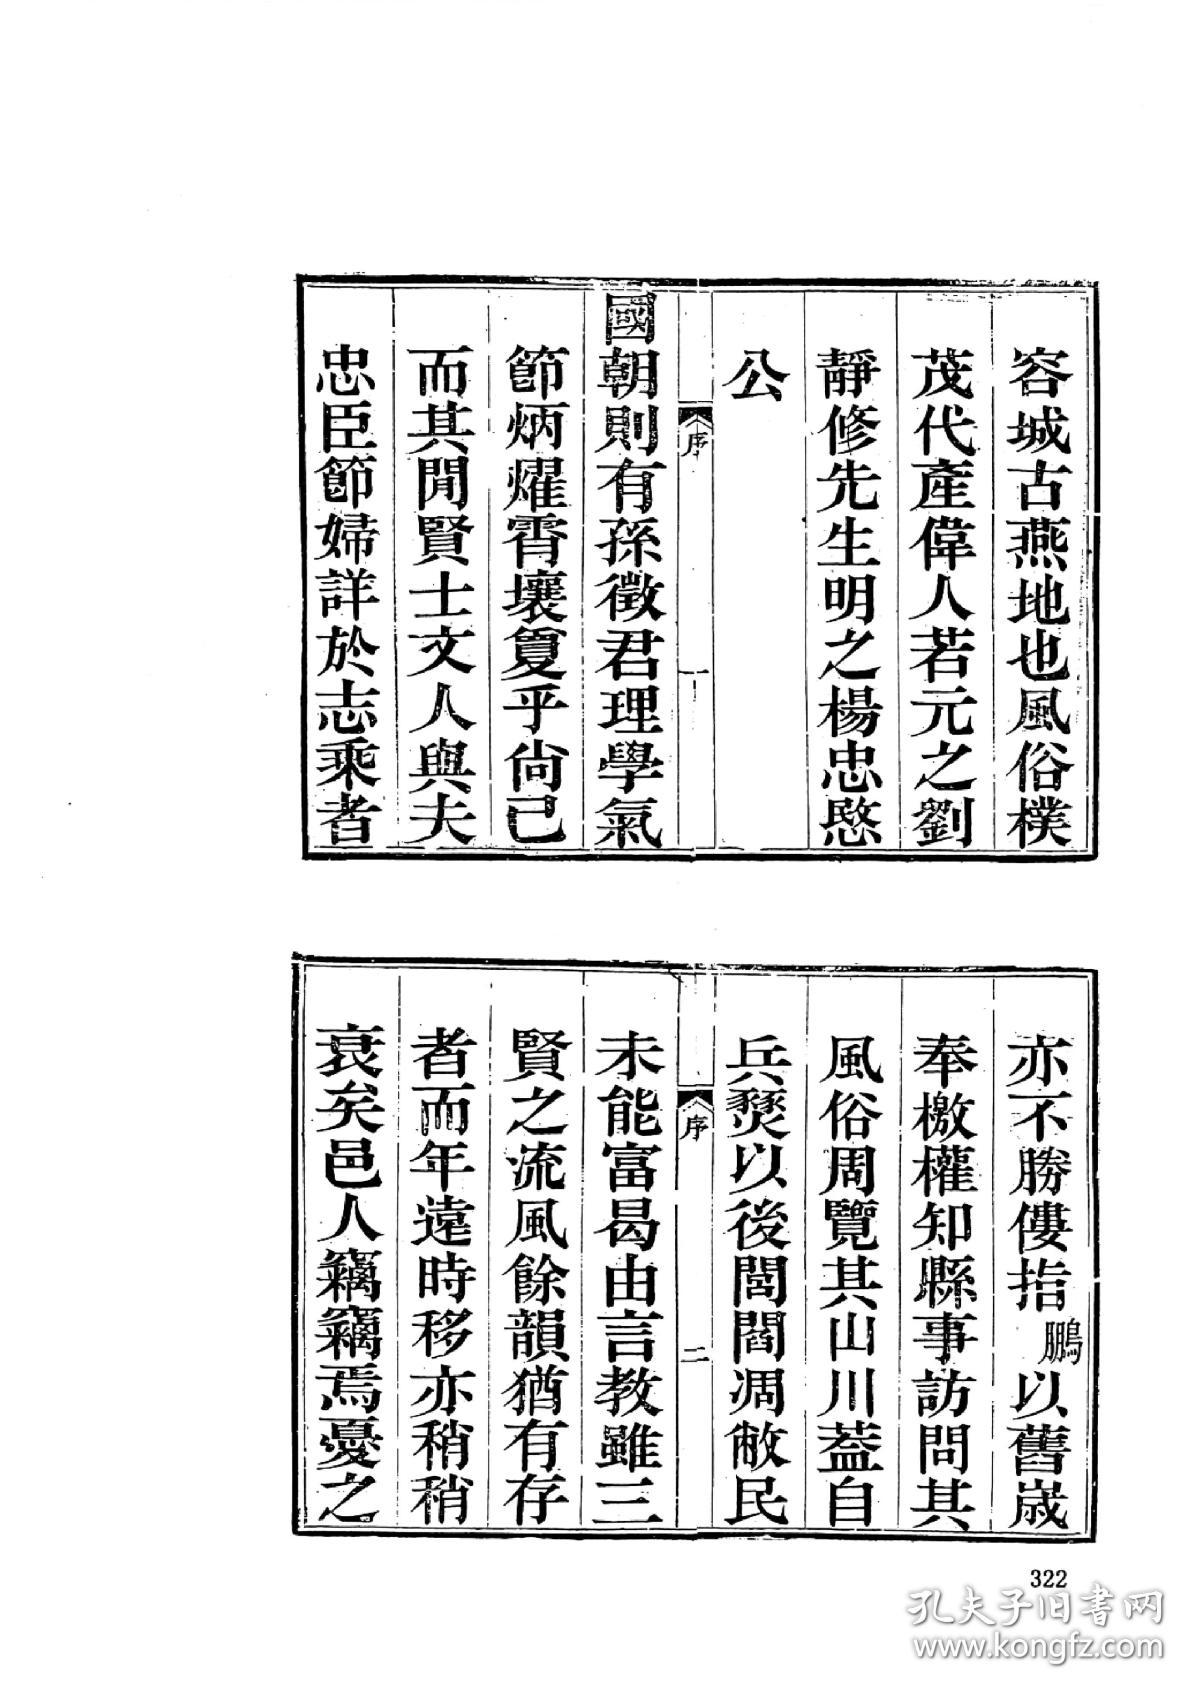 容城古燕地也風俗樸
茂代產偉人若元之劉
靜修先生明之楊忠愍
公
序
一
國朝則有孫徵君理學氣
節炳燿霄壤敻乎尙已
而其閒賢士文人與夫
忠臣節婦詳於志乘者
亦不勝僂指鵬以舊歲
奉檄權知縣事訪問其
風俗周覽其山川葢自
兵燹以後閭閻凋敝民
序
二
未能富曷由言教雖三
賢之流風餘韻猶有存
者而年遠時移亦稍稍
衰矣邑人竊竊焉憂之
322
孔夫子旧书网
www.kongfz.com